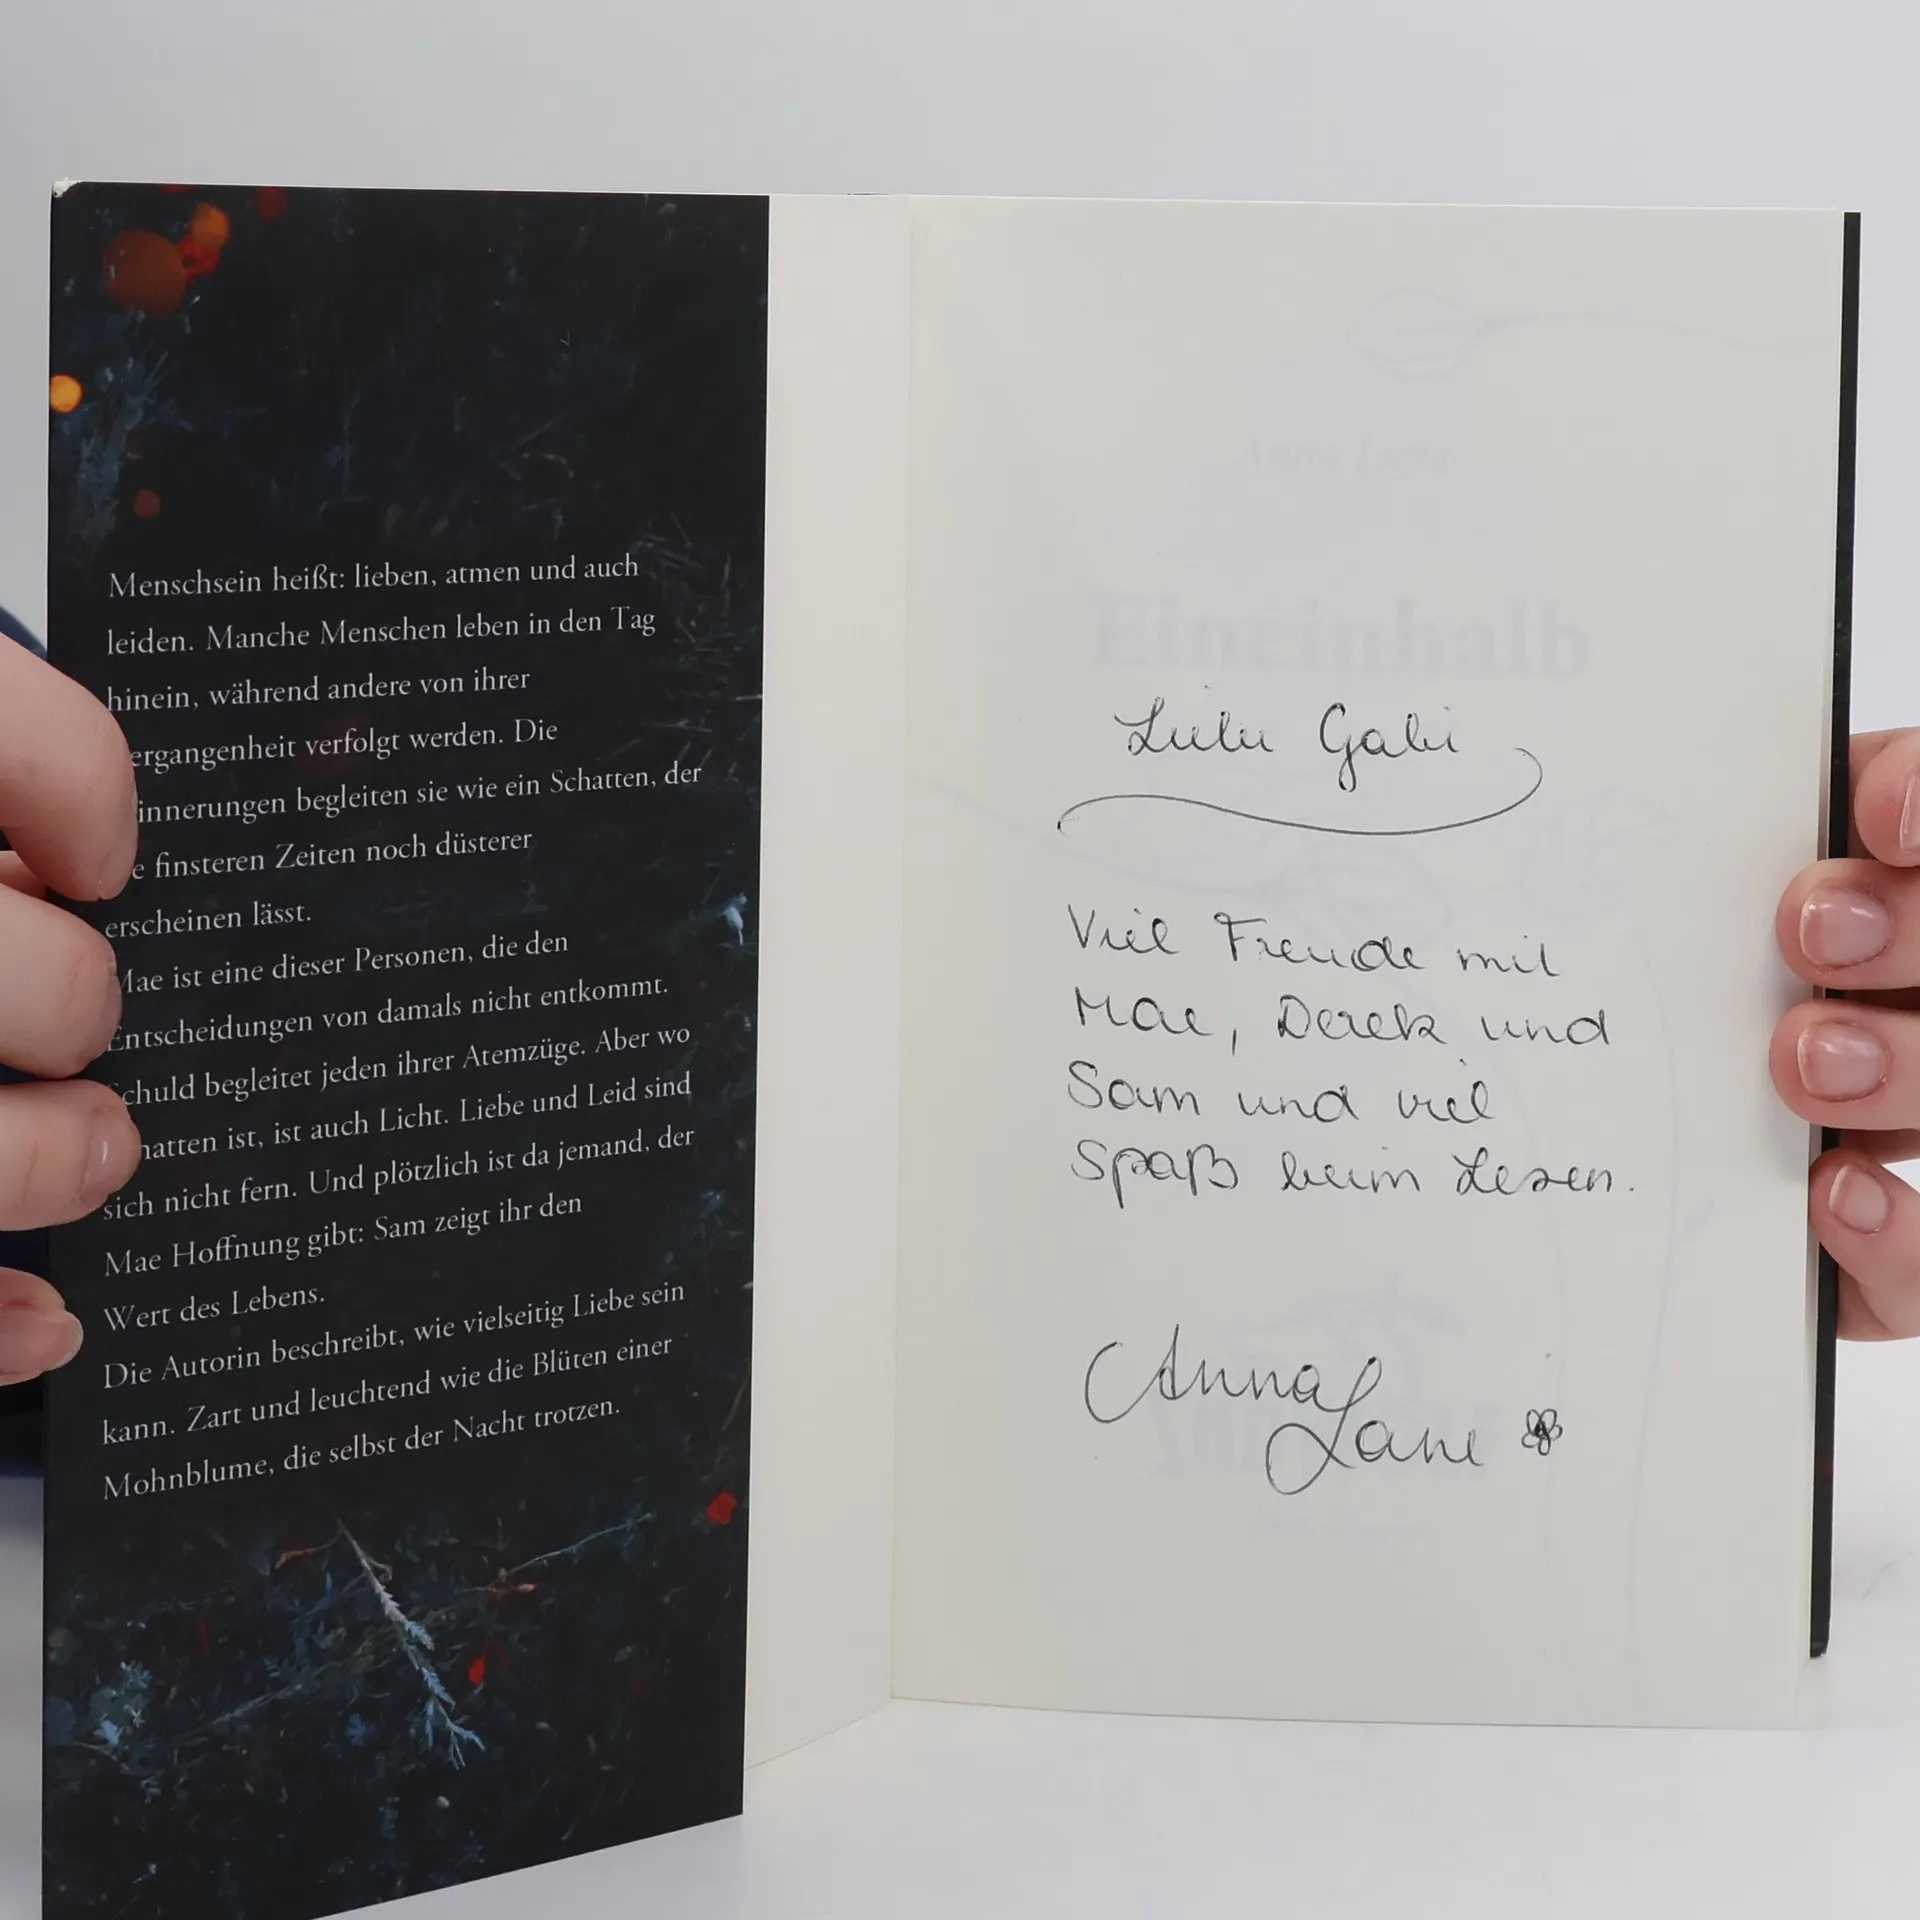 Menschsein heißt: lieben, atmen und auch
leiden. Manche Menschen leben in den Tag
hinein, während andere von ihrer
ergangenheit verfolgt werden. Die
innerungen begleiten sie wie ein Schatten, der
e finsteren Zeiten noch düsterer
erscheinen lässt.
Mae ist eine dieser Personen, die den
Entscheidungen von damals nicht entkommt.
chuld begleitet jeden ihrer Atemzüge. Aber wo
hatten ist, ist auch Licht. Liebe und Leid sind
sich nicht fern. Und plötzlich ist da jemand, der
Mae Hoffnung gibt: Sam zeigt ihr den
Wert des Lebens.
Die Autorin beschreibt, wie vielseitig Liebe sein
kann. Zart und leuchtend wie die Blüten einer
Mohnblume, die selbst der Nacht trotzen.
Eineinhalb
Gabi
Viel Freude mit
Mae, Derek und
Sam und viel
Spaß beim Lesen.
Anna
Lane